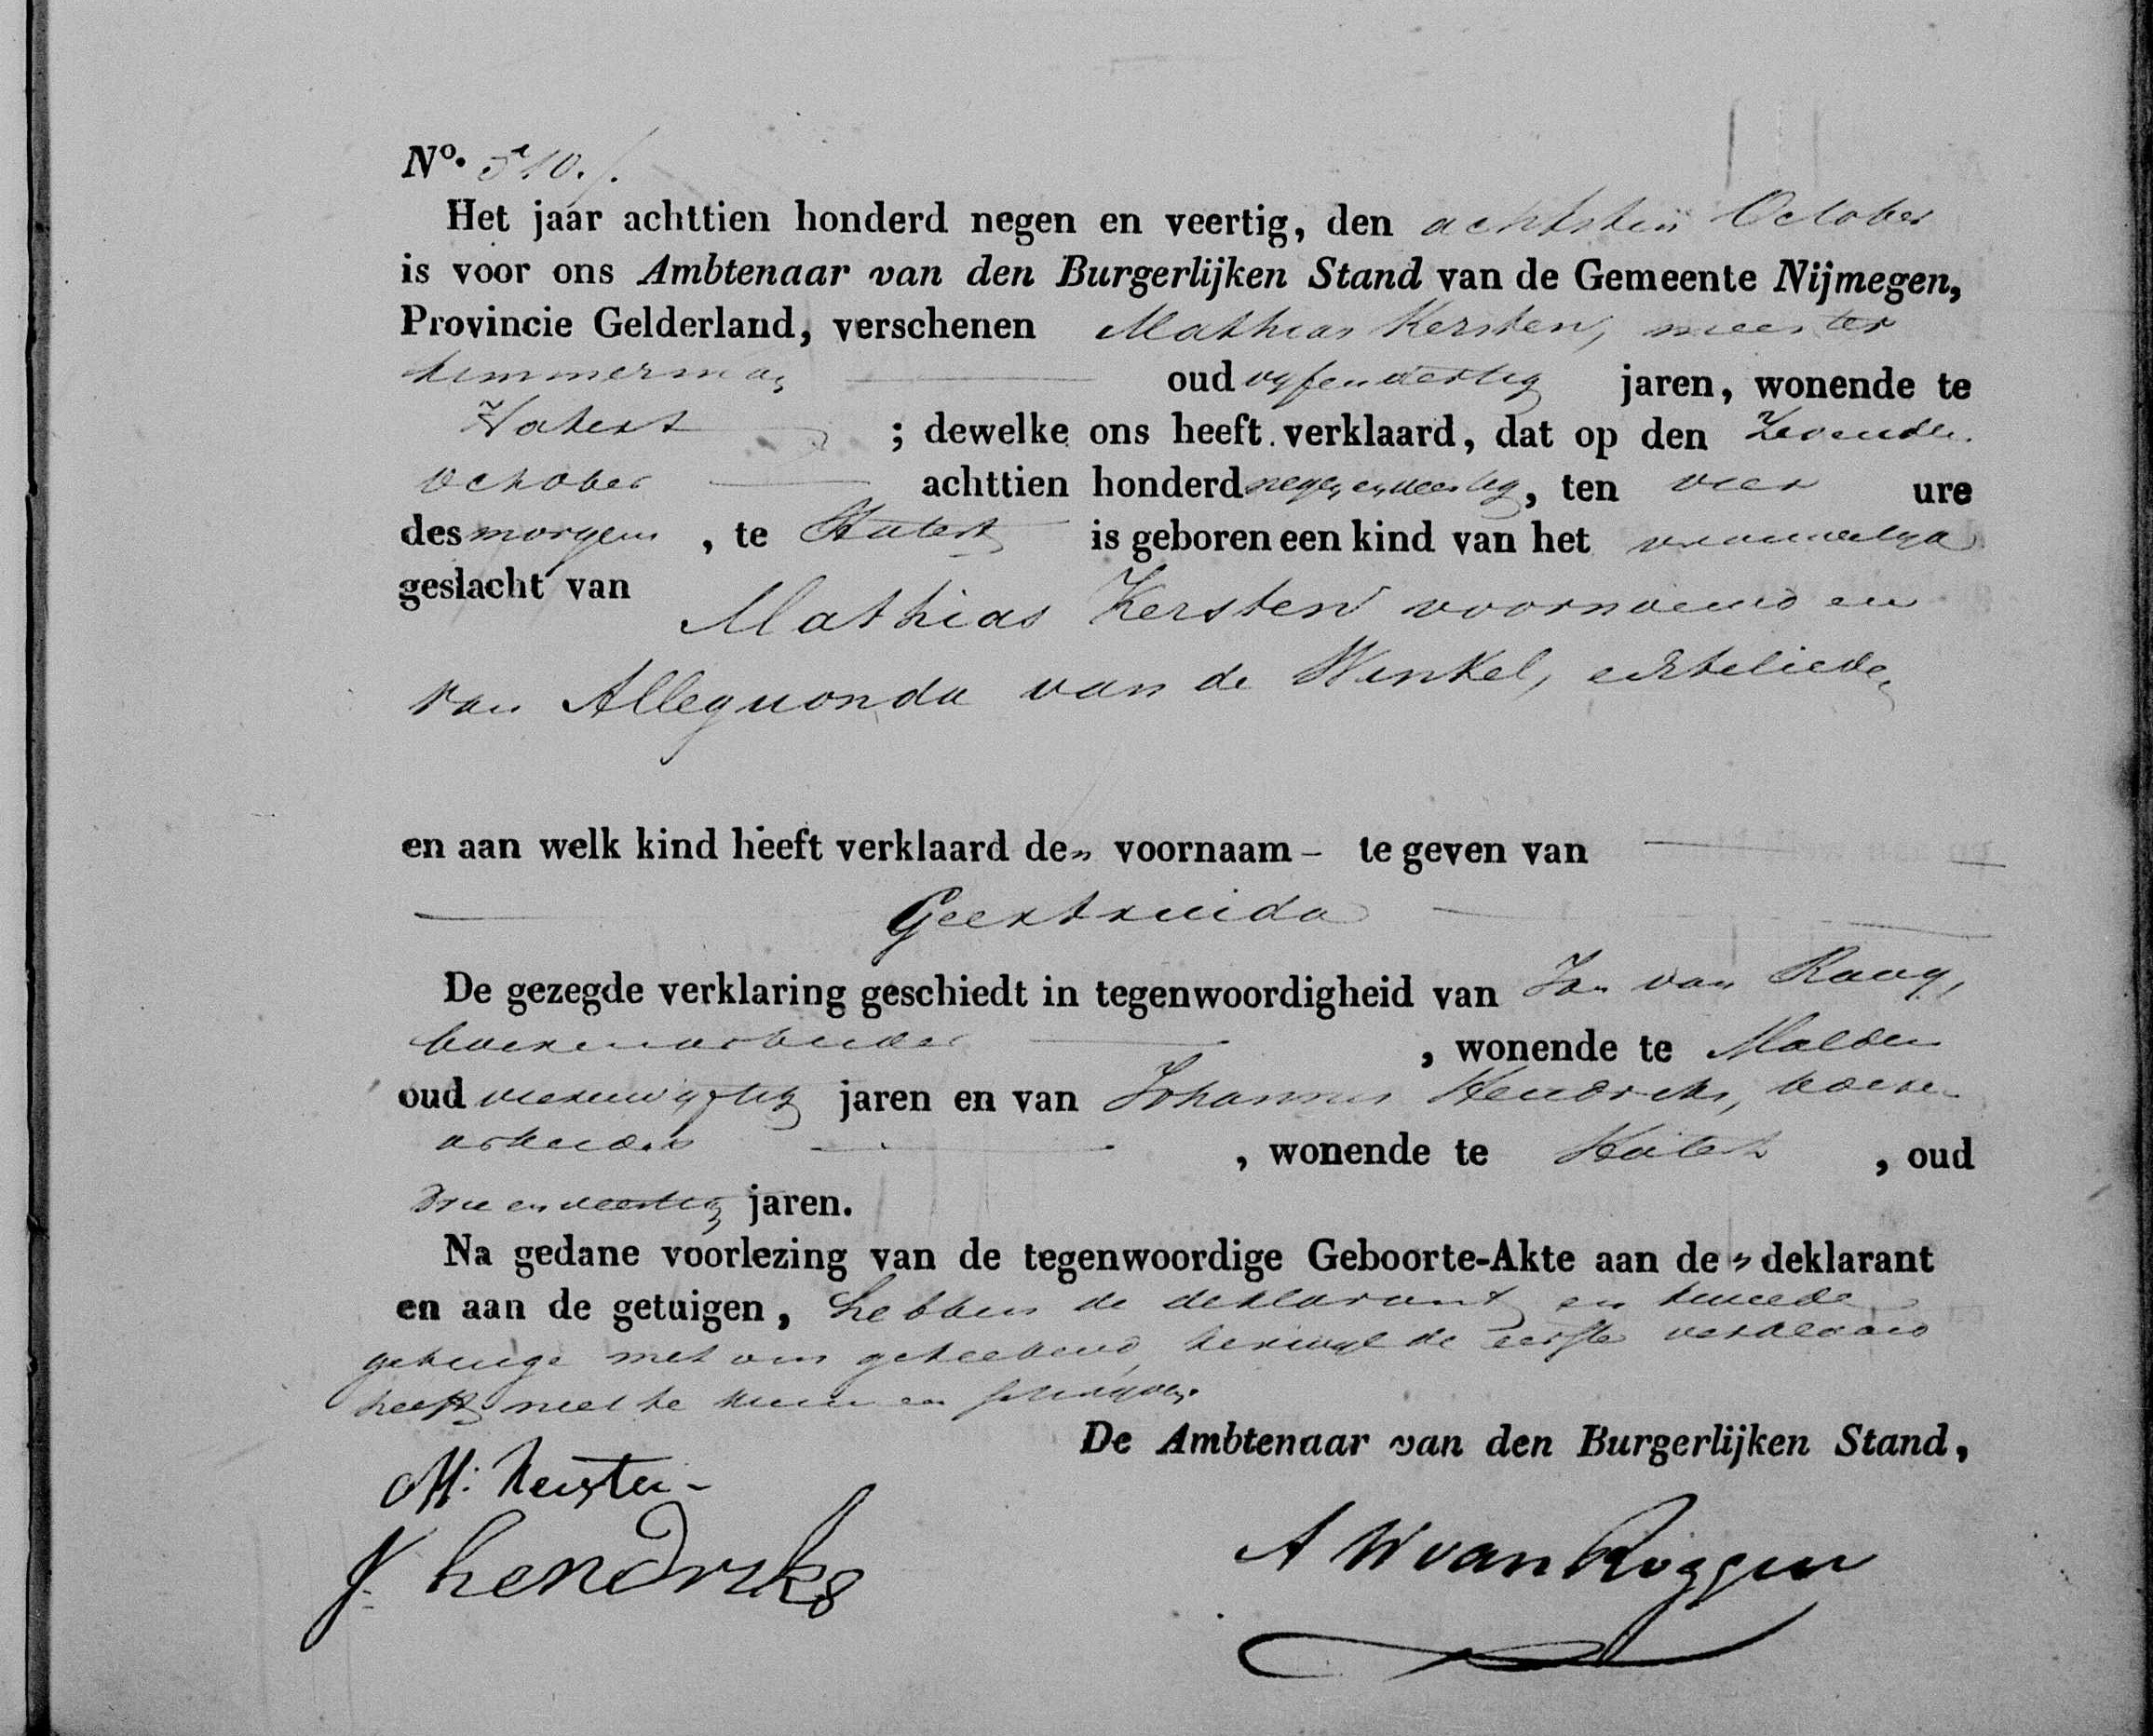 No. 510.
Het jaar achttien honderd negen en veertig, den achtsten October
is voor ons Ambtenaar van den Burgerlijken Stand van de Gemeente Nijmegen,
Provincie Gelderland, verschenen Mathias Kersten, meester
timmerman oud vyfendertig jaren, wonende te
Hatert ; dewelke ons heeft verklaard, dat op den zevenden
October achttien honderd negen en veertig, ten vier ure
des morgens , te Hatert is geboren een kind van het vrouwelyk
geslacht van Mathias Kersten voornoemd en
van Allegonda van de Winkel, echtelieden
en aan welk kind heeft verklaard de„ voornaam – te geven van
Geertruida
De gezegde verklaring geschiedt in tegenwoordigheid van Jan van
boerenarbeider , wonende te Malden
oud vierenvyftig jaren en van Johannes Hendriks, boeren
arbeider , wonende te Hatert , oud
drie en veertig jaren.
Na gedane voorlezing van de tegenwoordige Geboorte-Akte aan de „ deklarant
en aan de getuigen, hebben de deklarant en tweede
getuige met ons geteekend, terwyl de eerste verklaard
heeft niet te kunnen schryven.
De Ambtenaar van den Burgerlijken Stand,
M: Kersten
J. hendriks
A W van Roggen